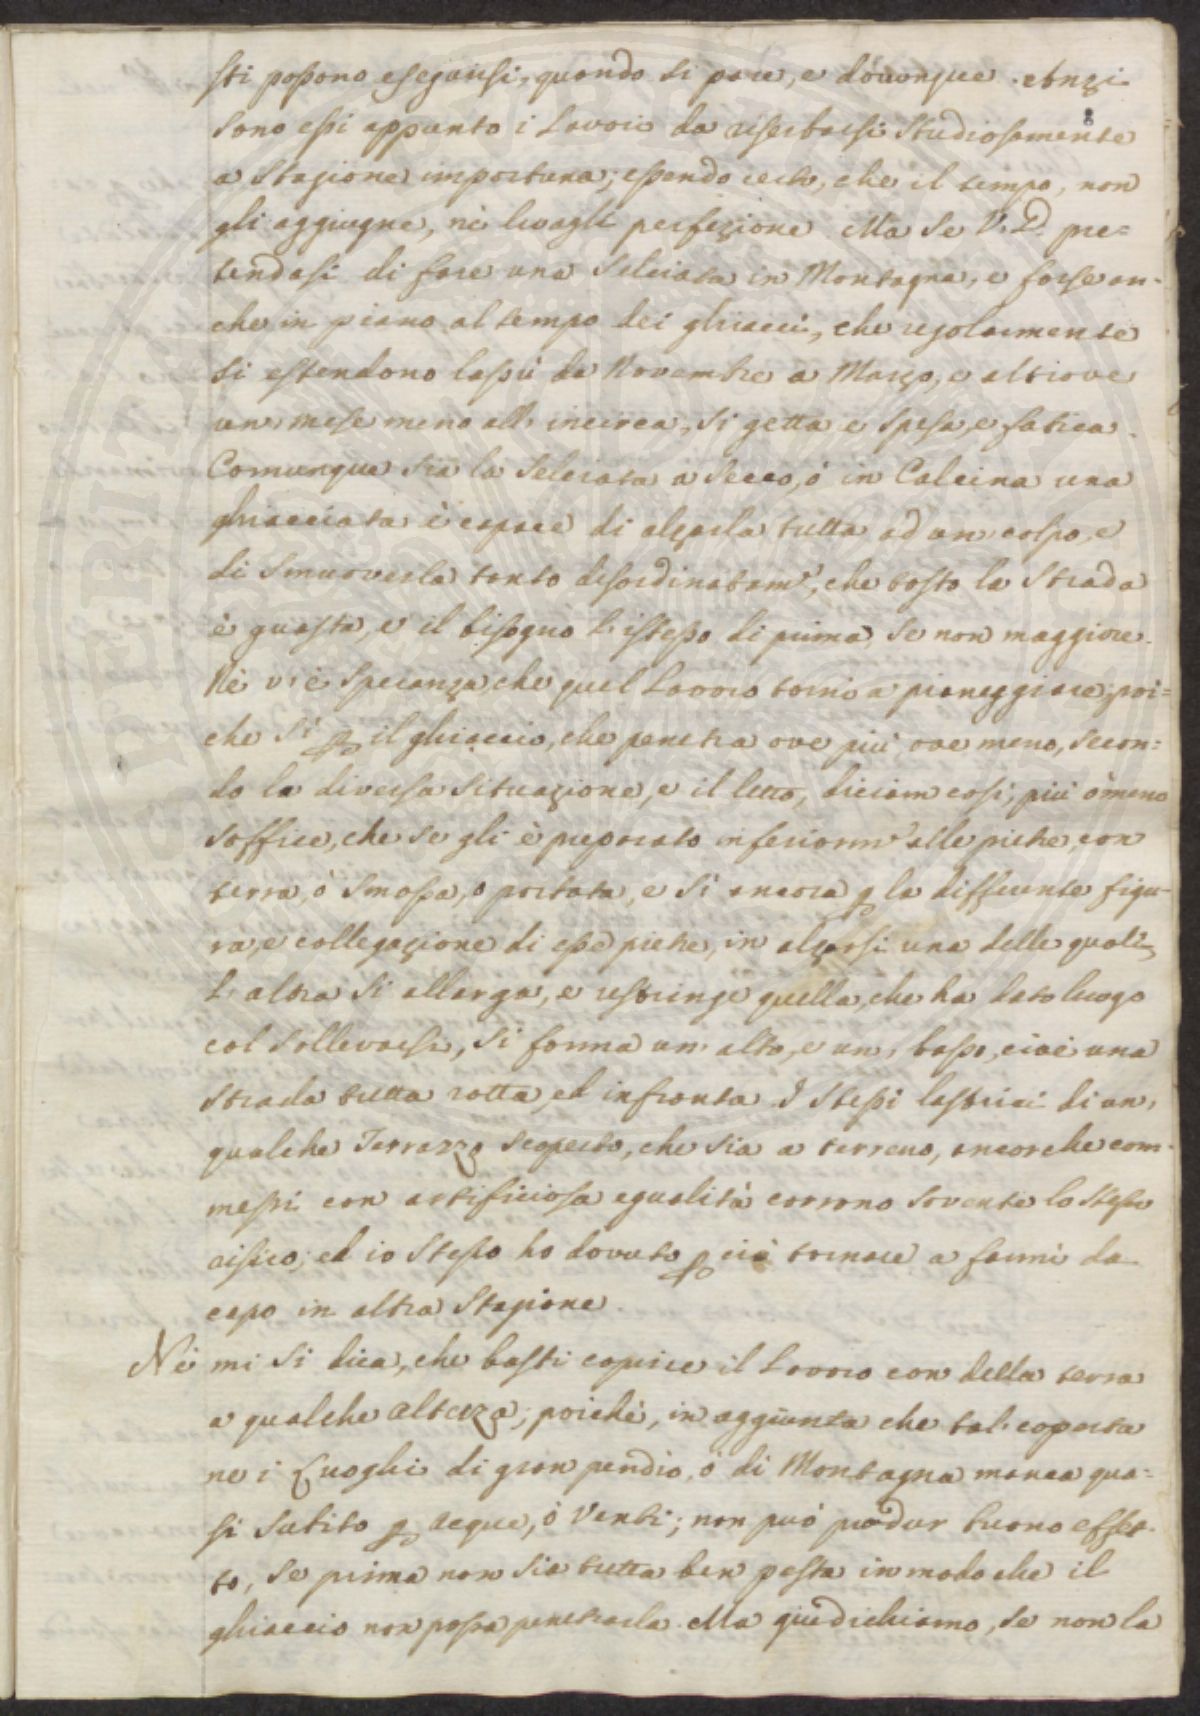 sti possono esequirsi, quando si pare, e dovunque. Anzi
8
sono essi appunto i Lavori da riserbarsi studiosamente
a Stagione importuna; essendo certo, che il tempo, non
gli aggiugne, nè levagli perfezione. Ma se V. D. pre=
tendasi di fare una Selciata in Montagna, e forse an-
che in piano al tempo dei ghiacci, che regolarmente
si estendono lassù da Novembre a Marzo, e altrove
un mese meno all' incirca, si getta e spesa, e fatica.
Comunque sia la Selciata a Secco, ò in Calcina una
ghiacciata è capace di alzarla tutta ad un colpo, e
di smuoverla tanto disordinatam.e, che tosto la Strada
è guasta, e il bisogno l' istesso di prima, se non maggiore.
Nè v' è speranza, che quel Lavoro torni a pianeggiare; poi=
che sì p il ghiaccio, che penetra ove più ove meno, secon=
do la diversa situazione, e il letto, diciam così, più ò meno
soffice, che se gli è preparato inferiorm.e alle pietre con
terra, ò smossa, o portata, e sì ancora p la differente figu-
ra, e collegazione di esse pietre, in alzarsi una delle quali,
l' altra si allarga, e restringe quella, che ha dato luogo
col sollevarsi, si forma un' alto, e un' basso, cioè una
strada tutta rotta, ed infranta. I stessi lastrici di un'
qualche Terrazzo scoperto, che sia a terreno, ancorche com-
messi con artificiosa egualità corrono sovente lo stesso
risico; ed io stesso ho dovuto p ciò tornare a farmi da
capo in altra Stagione.
Nè mi si dica, che basti coprire il Lavoro con della terra
a qualche altezza; poichè, in aggiunta che tal coperta
ne i Luoghi di gran pendio, ò di Montagna manca qua=
si subito p acque, ò Venti; non può produr buono effet-
to, se prima non sia tutta ben pesta in modo che il
ghiaccio non possa penetrarla. Ma giudichiamo, se non la